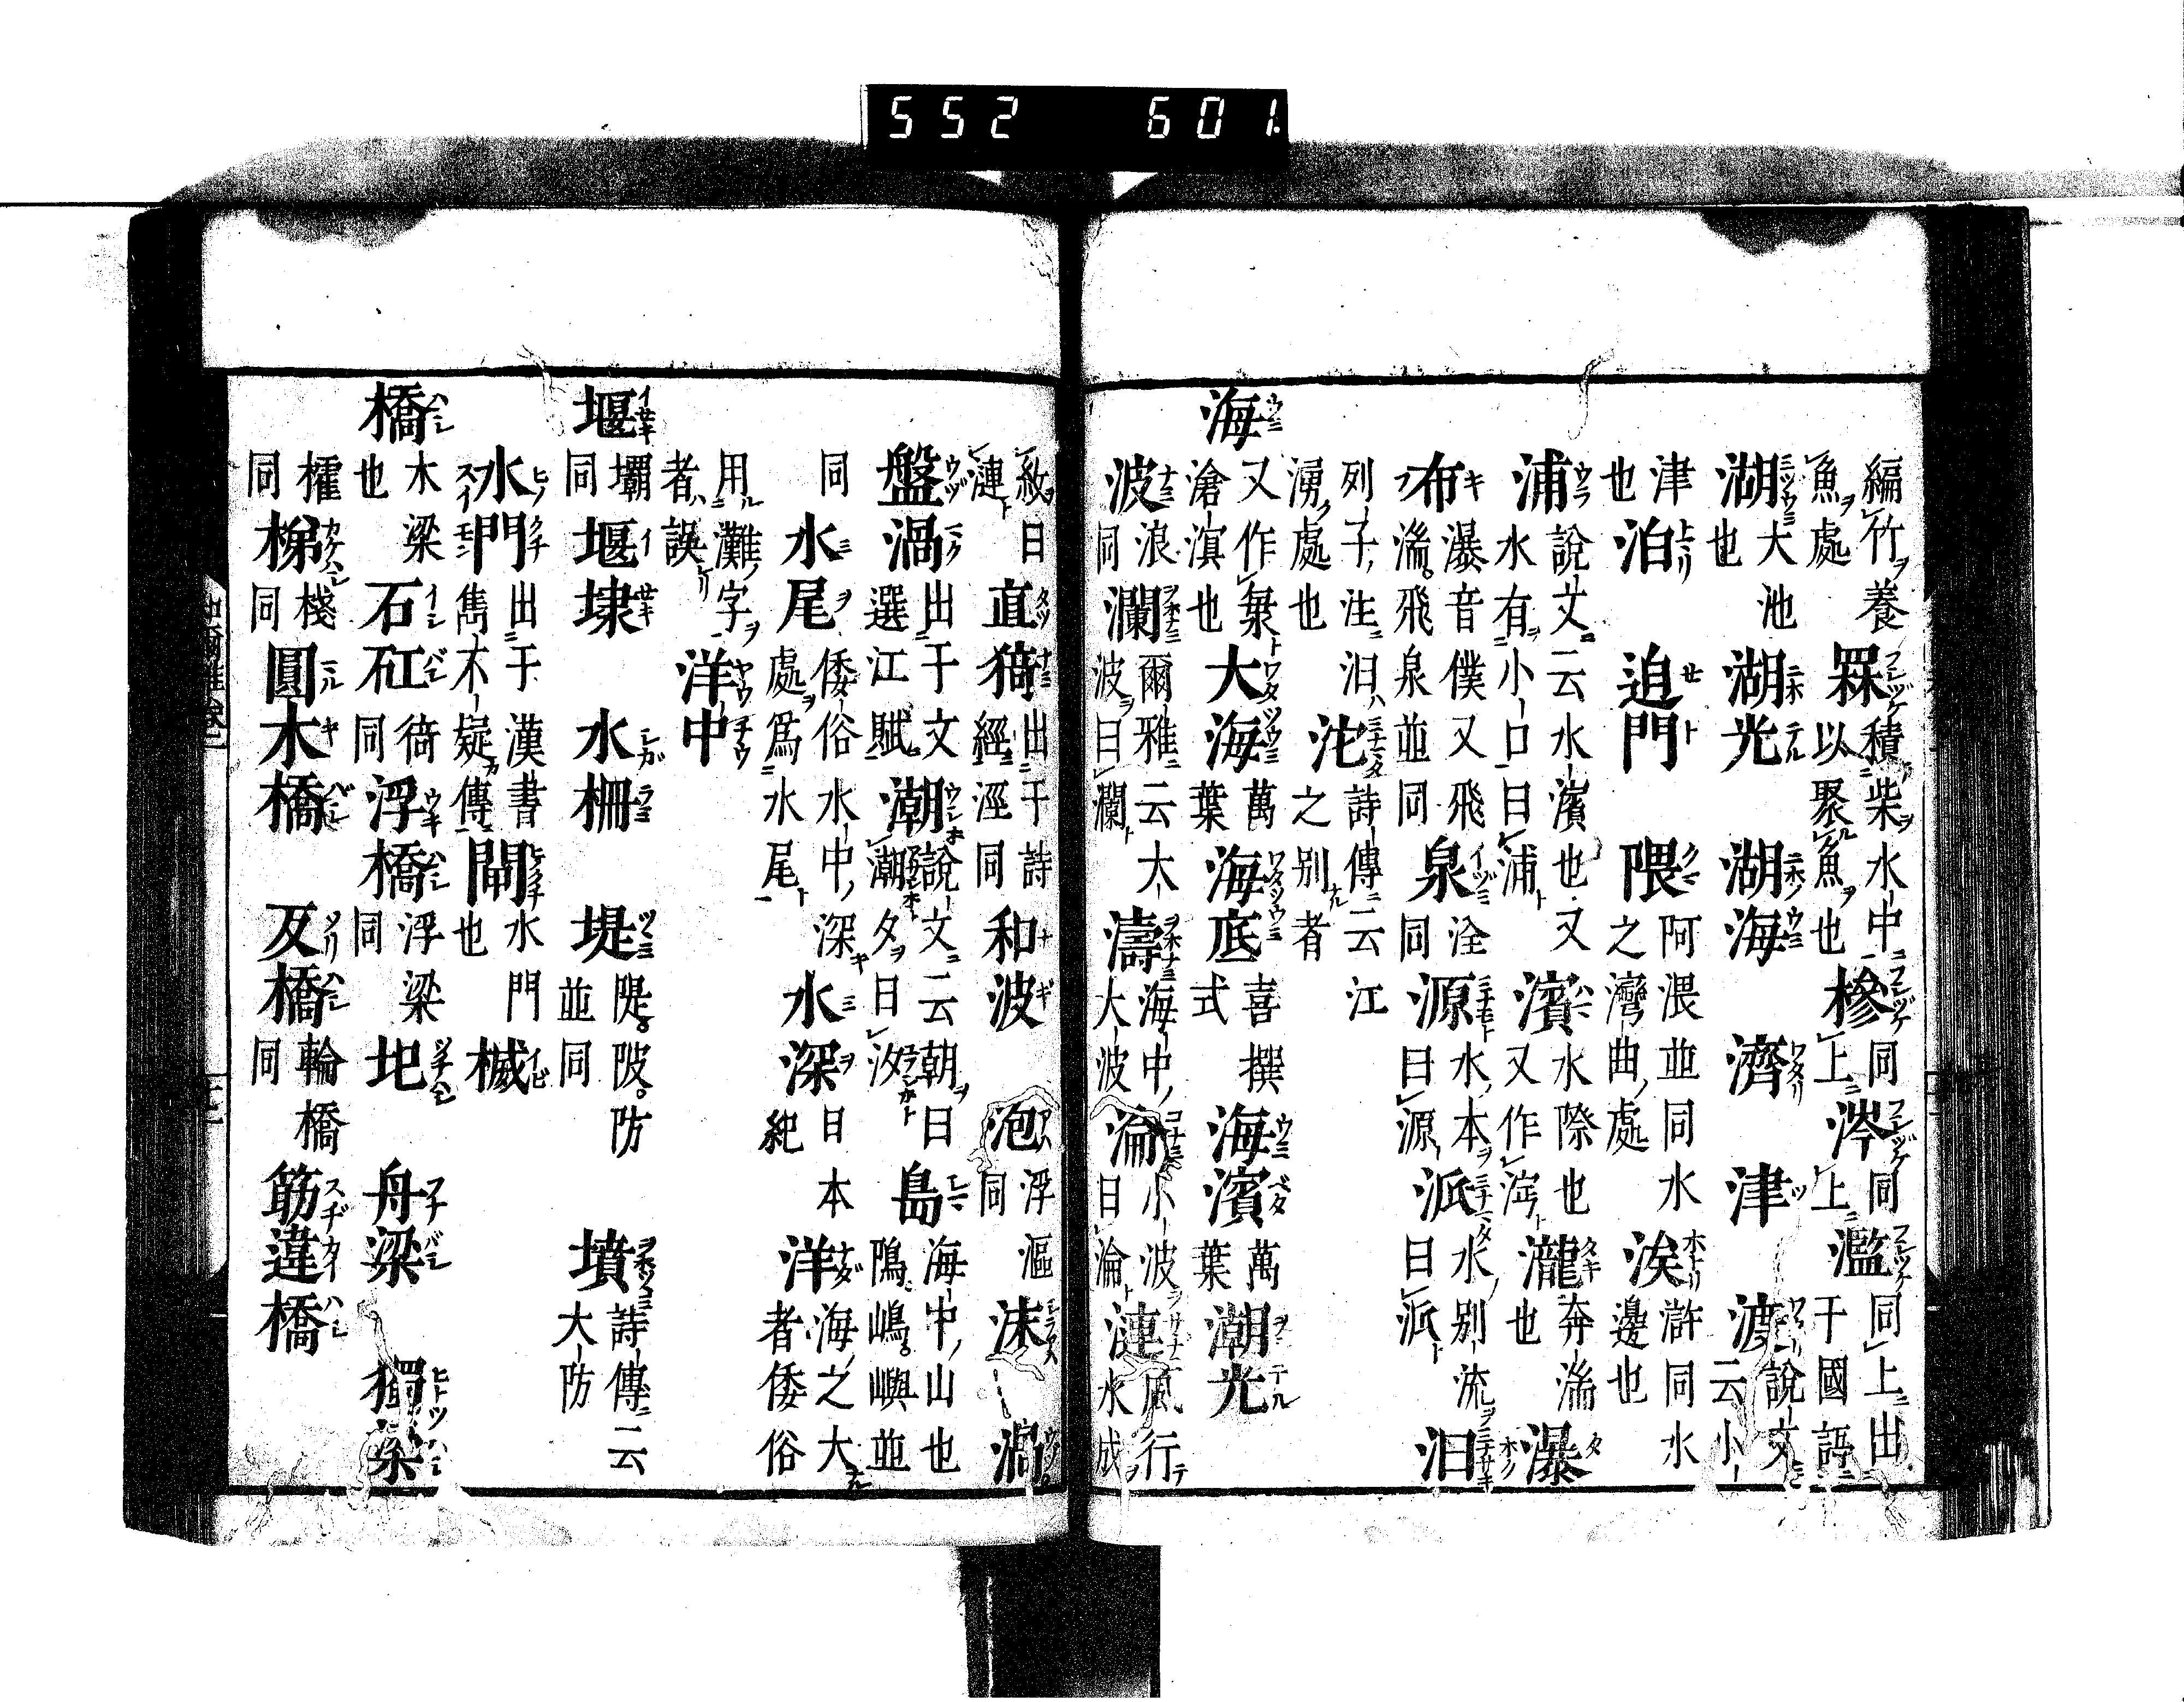 552 601.
編竹養魚處 罧 積柴水中以聚魚也 椮 同上 涔 同上 濫 同上出于國語
湖 大池也 湖光 湖海 濟 津 渡 說文云小
津也 泊 迫門 隈 阿渨並同水之灣曲處 涘 滸同水邊也
浦 說文云水濱也又水有小口曰浦 濱 水際也又作 瀧 奔湍也 瀑
布 瀑音僕又飛湍飛泉並同 泉 洤同 源 水本曰源 派 水別流曰派 汩
列子注汩湧處也 沱 詩傳云江之別者
海 又作 滄溟也 大海 萬葉 海底 喜撰式 海濱 萬葉 潮光
波 浪同 瀾 爾雅云大波曰瀾 濤 海中大波 淪 小波曰淪 漣 風行水成
紋曰漣 直猗 出于詩經涇同 和波 泡 浮漚同 沫 渦
盤渦 出于文選江賦 潮 說文云朝曰潮夕曰汐 島 海中山也隝嶋嶼並
同 水尾 倭俗水中深處爲水尾 水深 日本紀 洋 海之大者倭俗
用灘字者誤 洋中
堰 壩同 堰埭 水柵 堤 隄陂防並同 墳 詩傳云大防
水門 出于漢書雋不疑傳 閘 水門也 楲
橋 木梁也 石矼 徛同 浮橋 浮梁同 圯 舟梁 獨梁
榷同 梯 棧同 圓木橋 反橋 輪橋同 筋違橋